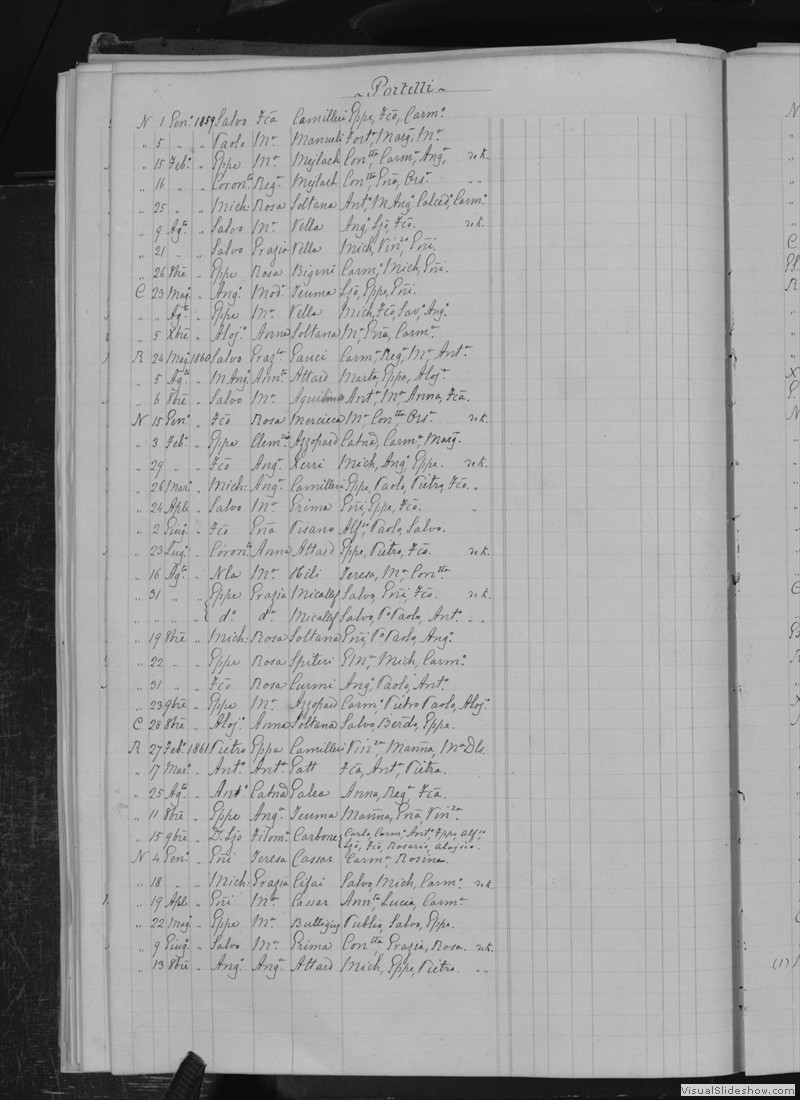 Portelli
N 1 Gen.º 1859 Salvo Fca Camilleri Gppe, Fco, Carm.º
" 5 " " Paolo M.a Manueli Fort.a, Marg.a, M.a
" 15 Feb.º " Gppe M.a Mejlach Con.tta, Carm.a, Ang.a
" 16 " " Coron.to Reg.a Mejlach Con.tta, Gna, Ors.a
" 25 " " Mich: Rosa Soltana Ant.º, M.Ang.º, Calced.º, Carm.º
" 9 Ag.to " Salvo M.a Vella Ang.º, Ljo, Fco.
" 21 " " Salvo Grazia Vella Mich, Vin.zo, Gni.
" 26 8bre " Gppe Rosa Bigeni Carm.º, Mich, Gni.
C 23 Mag.º " Ang.º Mod.a Teuma Ljo, Gppe, Gni.
" " Ag.to " Gppe M.a Vella Mich, Fco, Sav.º, Ang.º
" 5 Xbre " Aloj.º Anna Soltana M.a, Gna, Carm.a
R 24 Mag.º 1860 Salvo Graz.a Gauci Carm.a, Reg.a, M.a, Ant.a
" 5 Ag.to " M.Ang.º Ann.ta Attard Marta, Gppa, Aloj.a
" 6 8bre " Salvo M.a Aquilina Ant.a, M.a, Anna, Fca.
N 15 Gen.º " Fco Rosa Mercieca M.a, Con.tta, Ors.a
" 3 Feb.º " Gppe Clem.za Azzopard Catna, Carm.a, Marg.a
" 29 " " Fco Ang.a Xerri Mich, Ang.º, Gppe.
" 26 Mar.º " Mich: Ang.a Camilleri Gppe, Paolo, Pietro, Fco.
" 24 Aple " Salvo M.a Grima Gni, Gppe, Fco.
" 2 Giug.º " Fco Gna Pisano Alf.so, Paolo, Salvo.
" 23 Lug.º " Coron.to Anna Attard Gppe, Pietro, Fco.
" 16 Ag.to " Nla M.a Hili Teresa, M.a, Con.tta
" 31 " " Gppe Grazia Micallef Salvo, Gni, Fco.
" " " " d.º d.a Micallef Salvo, P.º Paolo, Ant.º
" 19 8bre " Mich: Rosa Soltana Gni, P.º Paolo, Ang.º
" 22 " " Gppe Rosa Spiteri Mich, Carm.º
" 31 " " Fco Rosa Curmi Ang.º, Paolo, Ant.º
" 23 9bre " Gppe M.a Azzopard Carm.º, Pietro Paolo, Aloj.º
C 28 8bre " Aloj.º Anna Soltana Salvo, Berdo, Gppe.
R 27 Feb.º 1861 Pietro Gppa Camilleri Vin.za, Manna, M.a Dls.
" 17 Mar.º " Ant.º Ant.a Gatt Fca, Ant.a, Pietra.
" 25 Ag.to " Ant.º Catna Galea Anna, Reg.a, Fca.
" 11 8bre " Gppe Ang.a Teuma Manna, Gna, Vin.za
" 15 9bre " D. Ljo Filom.a Carbone Carlo, Carm.º, Ant.º, Gppe, Alf.so
Ljo, Fco, Rosario, Alojsio.
N 4 Gen.º " Gni Teresa Cassar Carm.a, Rosina.
" 18 " " Mich: Grazia Cifai Salvo, Mich, Carm.º
" 19 Aple " Gni M.a Cassar Ann.ta, Lucia, Carm.a
" 22 Mag.º " Gppe M.a Buttigieg Publio, Salvo, Gppe.
" 9 Giug.º " Salvo M.a Grima Con.tta, Grazia, Rosa.
" 13 8bre " Ang.º Ang.a Attard Mich, Gppe, Pietro.
VisualSlideshow.com